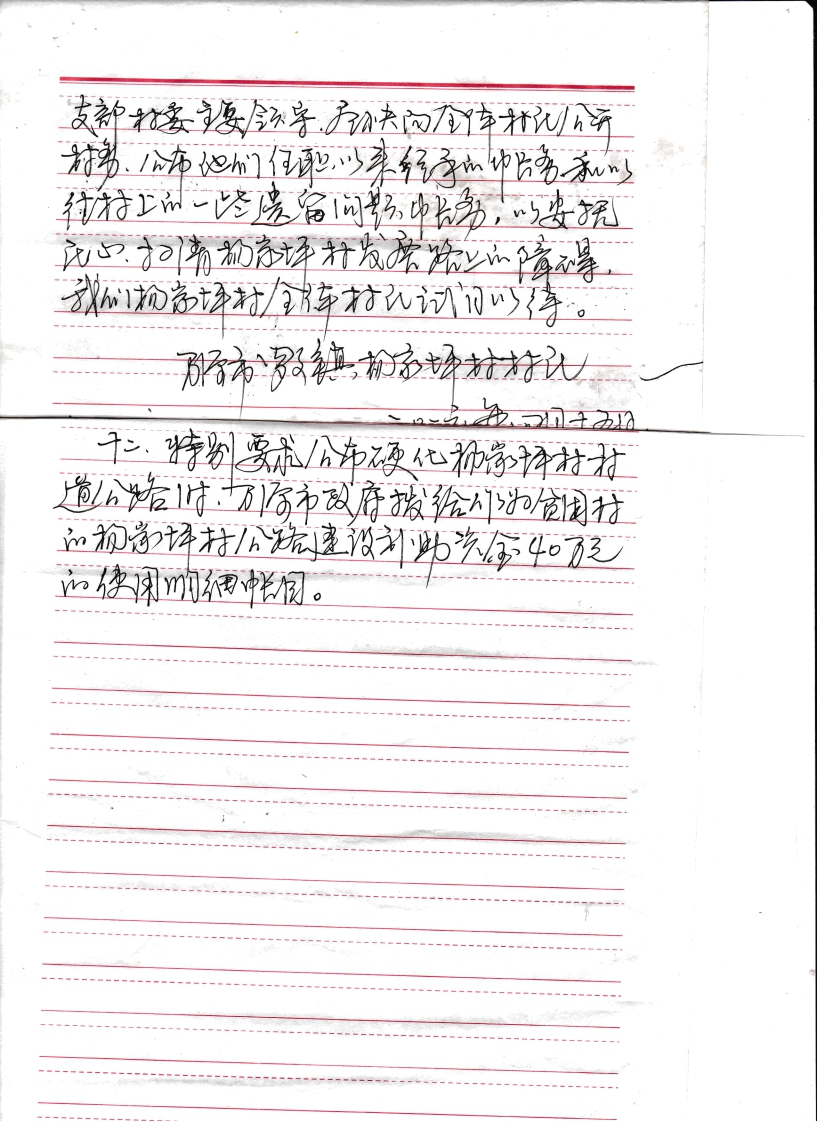 支部村委主要领导,尽快向全体村民公开
村务,公布他们任职以来经手的帐务和以
往村上的一些遗留问题帐务,以安抚
民心,扫清杨家坪村发展路上的障碍,
我们杨家坪村全体村民试目以待。
万源市 镇,杨家坪村村民
二〇一六年 月十五日
十二、特别要求公布硬化杨家坪村村
道公路时,万源市政府拨给 为贫困村
的杨家坪村公路建设补助资金40万元
的使用明细帐目。